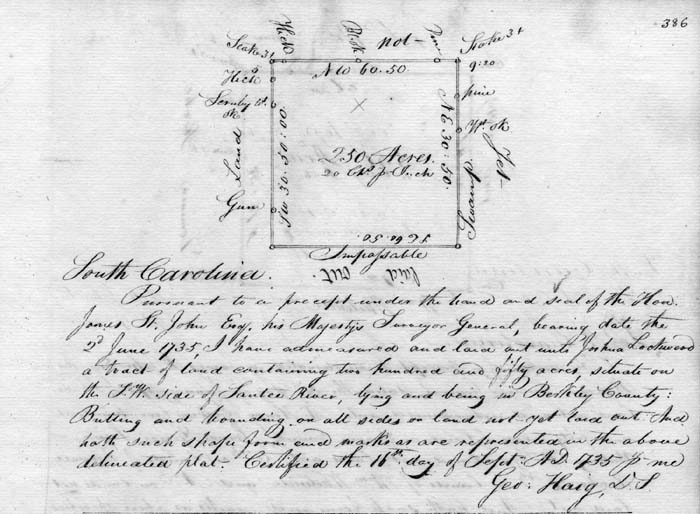 386
Hick
Black
not
Pine
Stake 3x
Stake 3x
9:20
NW 60.50.
Hick
pine
Scruby wt.
ok
Wt. ok
SW 30.50:00
NE 30:50.
Land
Yet
250 Acres.
20 Chs. pr Inch
Gum
Swamp
SE 60.50.
Impassable
laid out
South Carolina.
Pursuant to a precept under the hand and seal of the Hon.
James St. John Esq. his Majestys Surveyor General, bearing date the
2d June 1735, I have admeasured and laid out unto Joshua Lockwood
a tract of land containing two hundred and fifty acres, situate on
the S.W. side of Santee River, lying and being in Berkley County:
Butting and bounding on all sides on land not yet laid out And
hath such shape form and marks as are represented in the above
delineated plat. Certified the 16th. day of Sept: A.D. 1735 pr me
Geo: Haig, D.S.